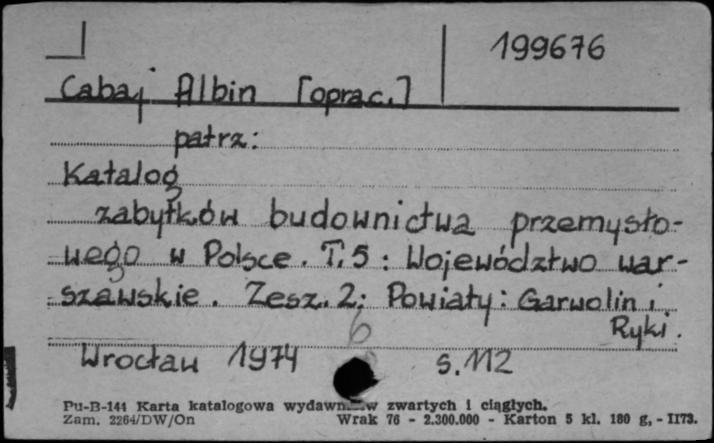 199676
Cabaj Albin [oprac.]
patrz:
Katalog
zabytków budownictwa przemysło-
wego w Polsce. T. 5 : Województwo war-
szawskie. Zesz. 2: Powiaty: Garwolin i
Ryki.
6
Wrocław 1974 s. 112
Pu-B-144 Karta katalogowa zwartych i ciągłych.
Zam. 2264/DW/On Wrak 76 - 2.300.000 - Karton 5 kl. 180 g, - II73.